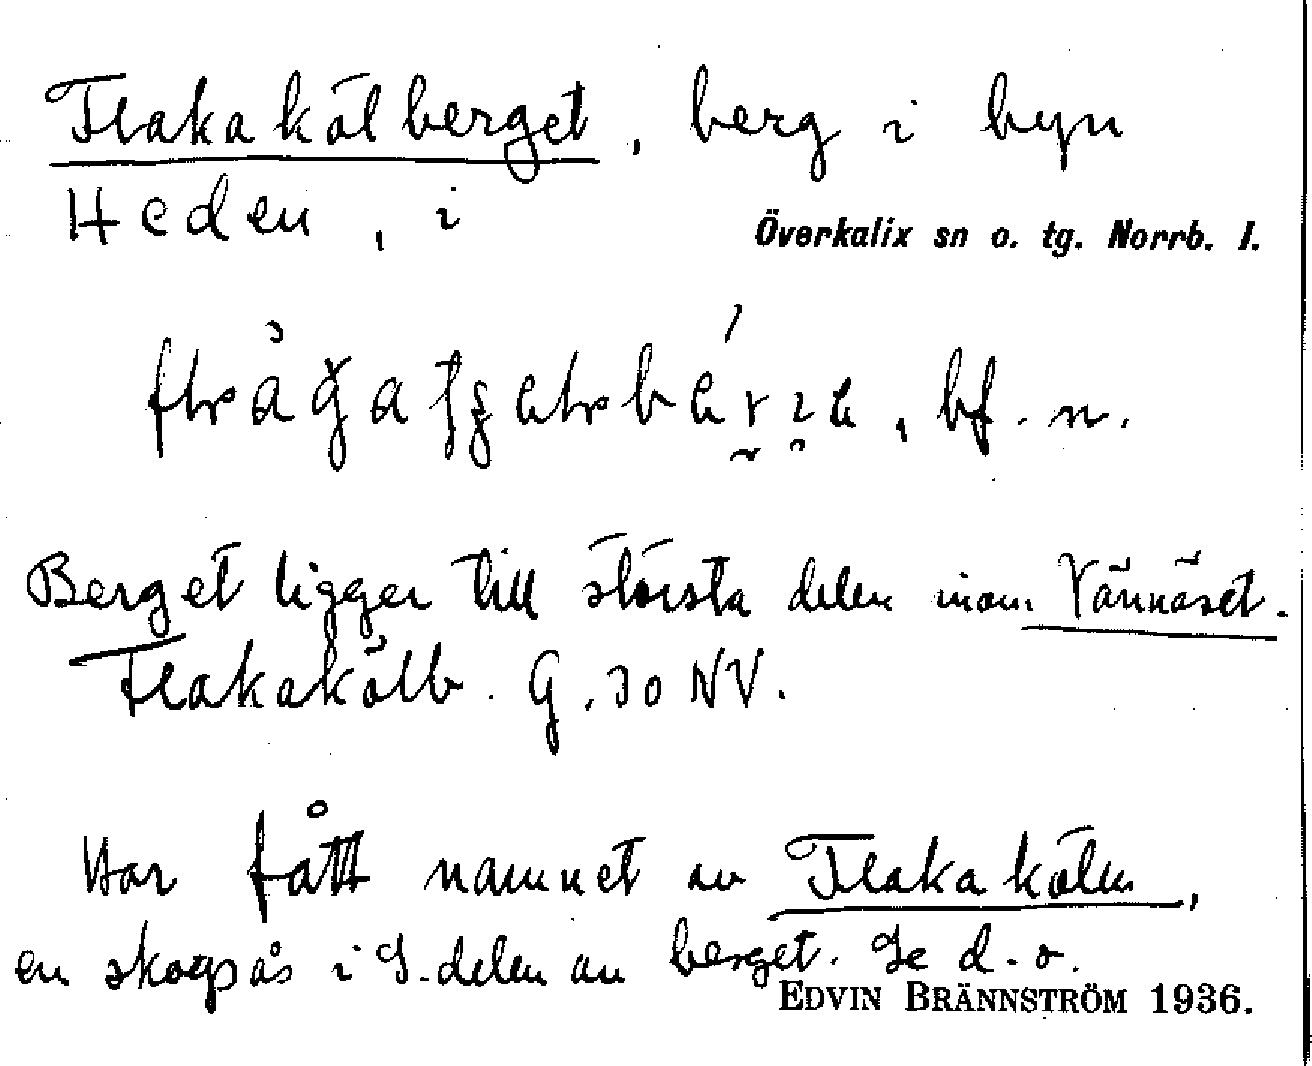 Flakakölberget, berg i byn
Heden, i
Överkalix sn o. tg. Norrb. l.
bf. n.
Berget ligger till största delen inom Vännäset.
Flakakölb. G. 30 NV.
Har fått namnet av Flakakölen,
en skogsås i S. delen av berget. Se d. o.
EDVIN BRÄNNSTRÖM 1936.